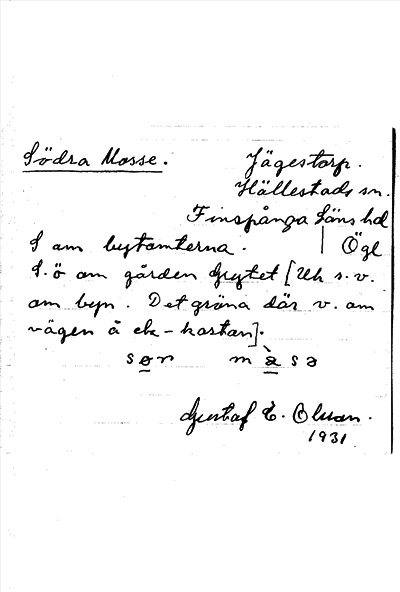 Södra Mosse. Jägestorp.
Hällestads sn.
Finspånga läns hd
S om bytomterna. Ögl
S.ö om gården Grytet [Uh s.v.
om byn. Det gröna där v. om
vägen å ek-kartan].
Gustaf E. Olsson.
1931